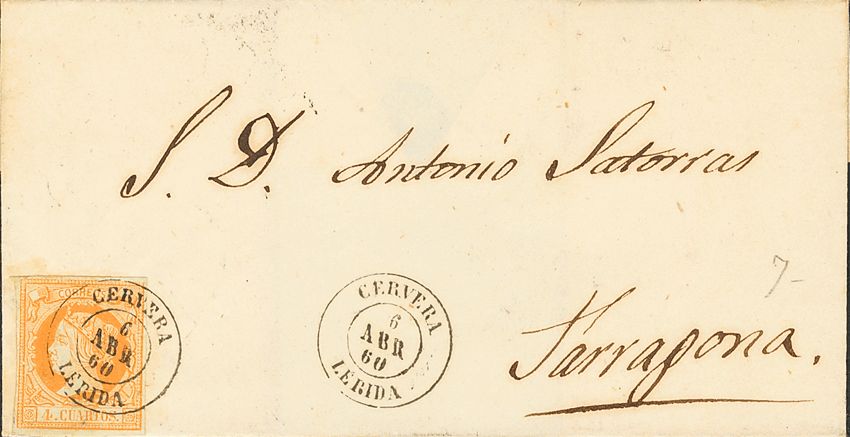 S. D. Antonio Satorras
7-
Tarragona.
CORREOS
CERVERA
6
ABR
60
LERIDA
4 CUARTOS
CERVERA
6
ABR
60
LERIDA